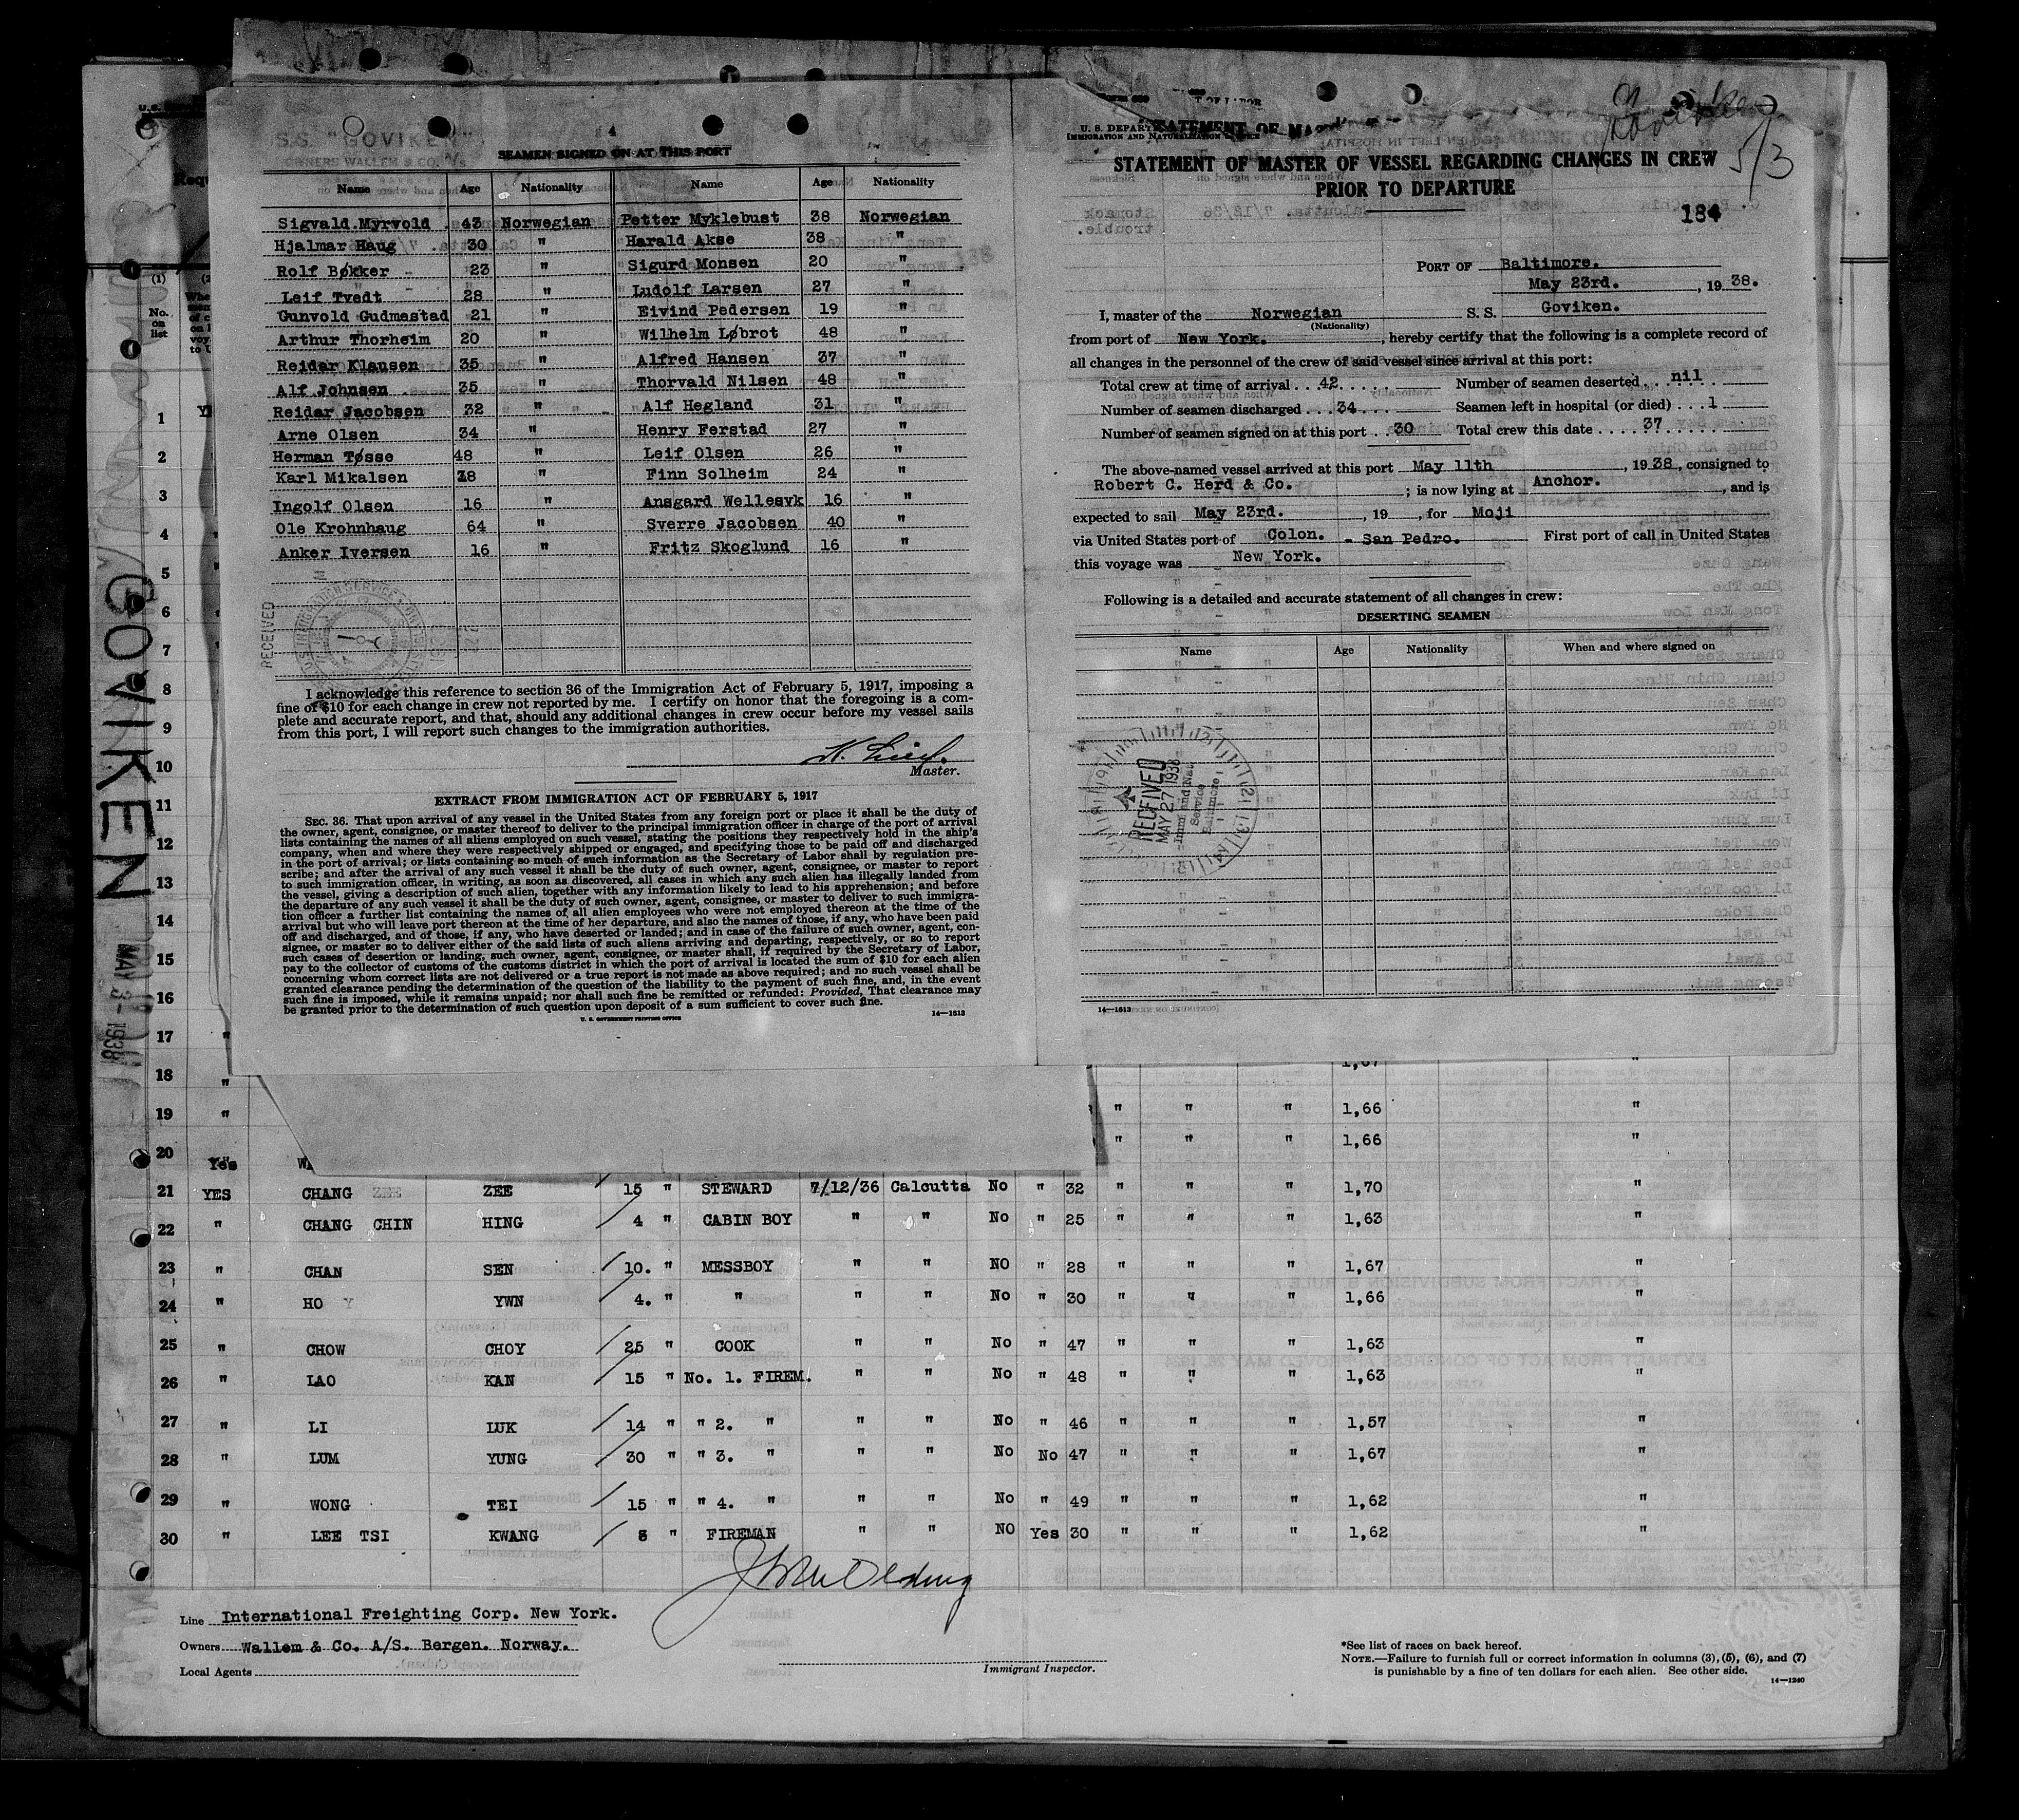 SEAMEN SIGNED ON AT THIS PORT
Name Age Nationality Name Age Nationality
Sigvald Myrvold 43 Norwegian Petter Myklebust 38 Norwegian
Hjalmar Haug 30 " Harald Akse 38 "
Rolf Bøkker 23 " Sigurd Monsen 20 "
Leif Tvedt 28 " Ludolf Larsen 27 "
Gunvold Gudmestad 21 " Eivind Pedersen 19 "
Arthur Thorheim 20 " Wilhelm Løbrot 48 "
Reidar Klausen 35 " Alfred Hansen 37 "
Alf Johnsen 35 " Thorvald Nilsen 48 "
Reidar Jacobsen 32 " Alf Hegland 31 "
Arne Olsen 34 " Henry Ferstad 27 "
Herman Tøsse 48 " Leif Olsen 26 "
Karl Mikalsen 18 " Finn Solheim 24 "
Ingolf Olsen 16 " Ansgard Wellesvk 16 "
Ole Krohnhaug 64 " Sverre Jacobsen 40 "
Anker Iversen 16 " Fritz Skoglund 16 "
RECEIVED
I acknowledge this reference to section 36 of the Immigration Act of February 5, 1917, imposing a
fine of $10 for each change in crew not reported by me. I certify on honor that the foregoing is a com-
plete and accurate report, and that, should any additional changes in crew occur before my vessel sails
from this port, I will report such changes to the immigration authorities.
Master.
EXTRACT FROM IMMIGRATION ACT OF FEBRUARY 5, 1917
SEC. 36. That upon arrival of any vessel in the United States from any foreign port or place it shall be the duty of
the owner, agent, consignee, or master thereof to deliver to the principal immigration officer in charge of the port of arrival
lists containing the names of all aliens employed on such vessel, stating the positions they respectively hold in the ship's
company, when and where they were respectively shipped or engaged, and specifying those to be paid off and discharged
in the port of arrival; or lists containing so much of such information as the Secretary of Labor shall by regulation pre-
scribe; and after the arrival of any such vessel it shall be the duty of such owner, agent, consignee, or master to report
to such immigration officer, in writing, as soon as discovered, all cases in which any such alien has illegally landed from
the vessel, giving a description of such alien, together with any information likely to lead to his apprehension; and before
the departure of any such vessel it shall be the duty of such owner, agent, consignee, or master to deliver to such immigra-
tion officer a further list containing the names of all alien employees who were not employed thereon at the time of the
arrival but who will leave port thereon at the time of her departure, and also the names of those, if any, who have been paid
off and discharged, and of those, if any, who have deserted or landed; and in case of the failure of such owner, agent, con-
signee, or master so to deliver either of the said lists of such aliens arriving and departing, respectively, or so to report
such cases of desertion or landing, such owner, agent, consignee, or master shall, if required by the Secretary of Labor,
pay to the collector of customs of the customs district in which the port of arrival is located the sum of $10 for each alien
concerning whom correct lists are not delivered or a true report is not made as above required; and no such vessel shall be
granted clearance pending the determination of the question of the liability to the payment of such fine, and, in the event
such fine is imposed, while it remains unpaid; nor shall such fine be remitted or refunded: Provided, That clearance may
be granted prior to the determination of such question upon deposit of a sum sufficient to cover such fine.
U. S. GOVERNMENT PRINTING OFFICE 14—1613
U. S. DEPARTMENT OF LABOR
IMMIGRATION AND NATURALIZATION SERVICE
Goviken
5/3
STATEMENT OF MASTER OF VESSEL REGARDING CHANGES IN CREW
PRIOR TO DEPARTURE
184
PORT OF Baltimore.
May 23rd. , 1938.
I, master of the Norwegian S. S. Goviken.
(Nationality)
from port of New York. , hereby certify that the following is a complete record of
all changes in the personnel of the crew of said vessel since arrival at this port:
Total crew at time of arrival . . 42. Number of seamen deserted. . . nil
Number of seamen discharged . . . 34 Seamen left in hospital (or died) . . . 1
Number of seamen signed on at this port . . 30 Total crew this date . . . . 37
The above-named vessel arrived at this port May 11th , 1938, consigned to
Robert C. Herd & Co. ; is now lying at Anchor. , and is
expected to sail May 23rd. , 19 , for Moji
via United States port of Colon. - San Pedro. First port of call in United States
this voyage was New York.
Following is a detailed and accurate statement of all changes in crew:
DESERTING SEAMEN
Name Age Nationality When and where signed on
RECEIVED
MAY 27 1938
Imm. and Nat.
Service
Baltimore
14—1613
GOVIKEN
MAY 3- 1938
(1)
No.
on
list
1
2
3
4
5
6
7
8
9
10
11
12
13
14
15
16
17 "
18 " 1,67
19 " " " " 1,66 "
20 Yes " " " 1,66 "
21 YES CHANG ZEE 15 " STEWARD 7/12/36 Calcutta No " 32 " " " 1,70 "
22 " CHANG CHIN HING 4 " CABIN BOY " " No " 25 " " " 1,63 "
23 " CHAN SEN 10. " MESSBOY " " NO " 28 " " " 1,67 "
24 " HO YWN 4. " " " " No " 30 " " " 1,66 "
25 " CHOW CHOY 25 " COOK " " No " 47 " " " 1,63 "
26 " LAO KAN 15 " No. 1. FIREM. " " No " 48 " " " 1,63 "
27 " LI LUK 14 " " 2. " " " No " 46 " " " 1,57 "
28 " LUM YUNG 30 " " 3. " " " No No 47 " " " 1,67 "
29 " WONG TEI 15 " " 4. " " " No " 49 " " " 1,62 "
30 " LEE TSI KWANG 8 " FIREMAN " " NO Yes 30 " " " 1,62 "
Line International Freighting Corp. New York.
Owners Wallem & Co. A/S. Bergen. Norway.
Local Agents
Immigrant Inspector.
*See list of races on back hereof.
NOTE.—Failure to furnish full or correct information in columns (3), (5), (6), and (7)
is punishable by a fine of ten dollars for each alien. See other side.
14—1240